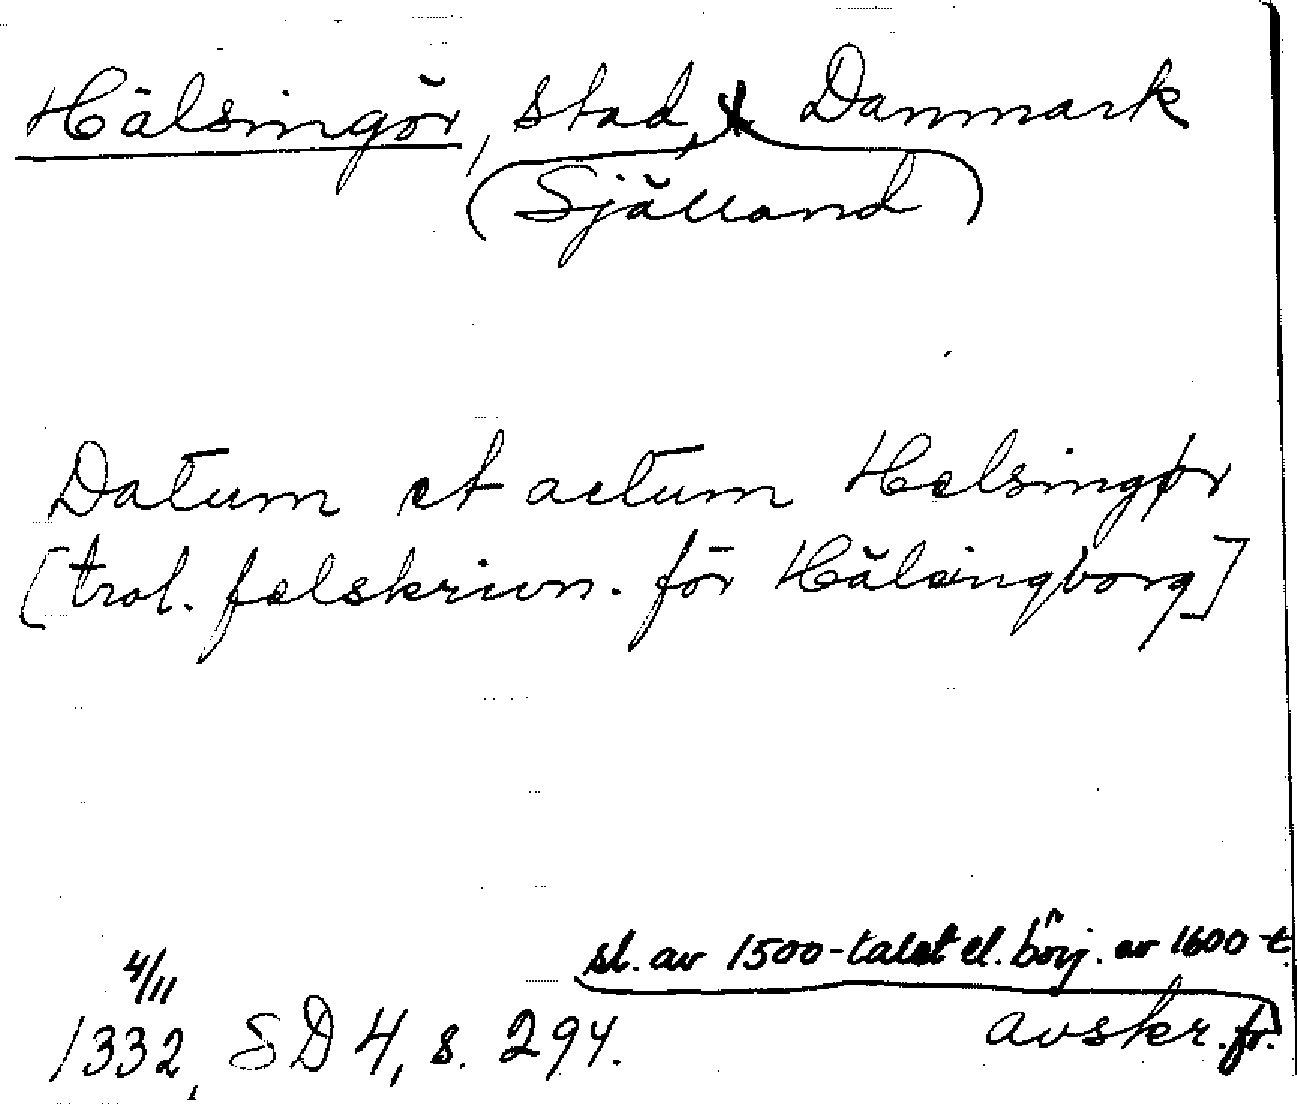 Hälsingör, stad, Danmark
(Själland)
Datum et actum Helsingør
[trol. felskrivn. för Hälsingborg]
sl. av 1500-talet el. börj. av 1600-t.
4/11
1332, SD 4, s. 294. avskr. fr.